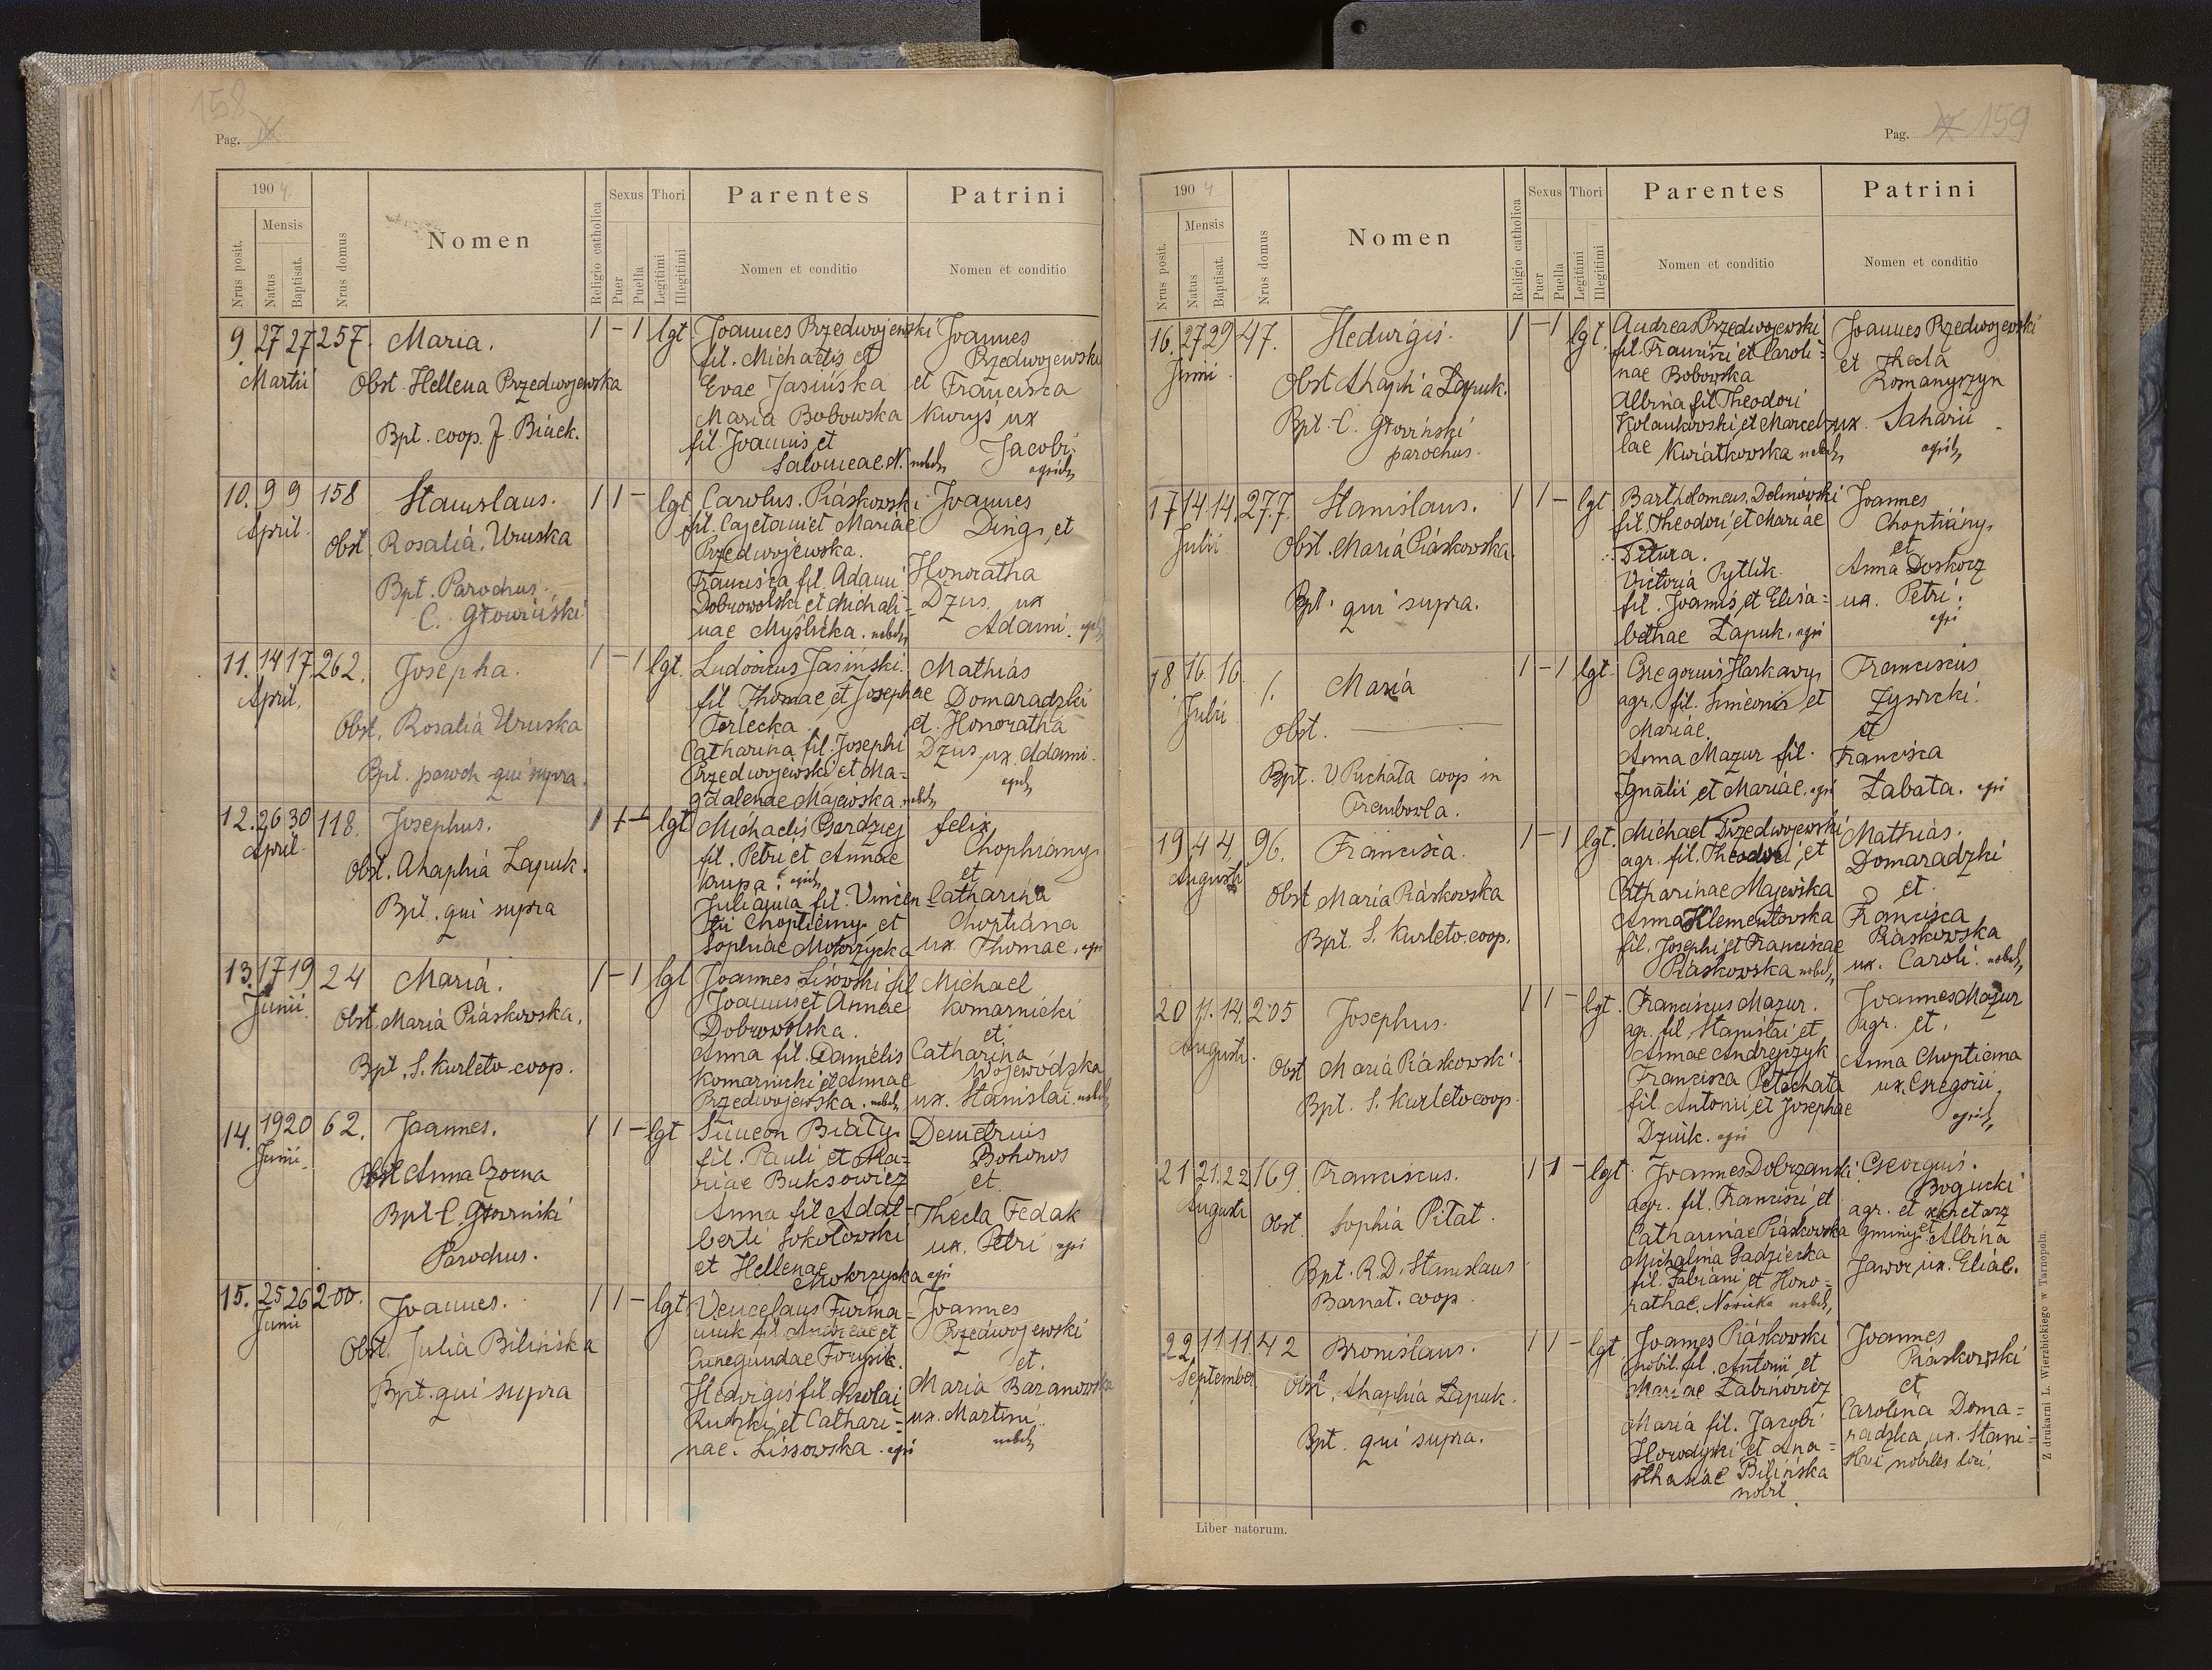 158
Pag.
1904.
Nrus posit.
Mensis
Natus
Baptisat.
Nrus domus
Nomen
Religio catholica
Sexus
Puer
Puella
Thori
Legitimi
Illegitimi
Parentes
Nomen et conditio
Patrini
Nomen et conditio
9. 27 27 257. Maria. 1 - 1 lgt.
Martii
Obst. Hellena Przedwojewska
Bpt. coop. J. Biiek.
Joannes Przedwojewski
fil. Michaelis et
Evae Jasińska
Maria Bobowska
fil. Joannis et
Salomeae N. nobil,
Joannes
Przedwojewski
et Francisca
Kurys ux
Jacobi
agric,
10. 9 9 158 Stanislaus. 1 1 - lgt
April.
Obst. Rosalia Uruska
Bpt. Parochus.
C. Głowiński
Carolus. Piaskowski
fil. Cajetani et Mariae
Przedwojewska.
Francisca fil. Adami
Dobrowolski et Michali-
nae Myślicka. nobil,
Joannes
Ding, et
Honoratha
Dzus. ux
Adami.
11. 14 17. 262. Josepha. 1 - 1 lgt.
April.
Obst. Rosalia Uruska
Bpt. paroch qui supra.
Ludovicus Jasiński.
fil Thomae et Josephae
Terlecka.
Catharina fil. Josephi
Przedwojewski et Ma-
gdalenae Majewska. nobil,
Mathias
Domaradzki
et. Honoratha
Dzus ux. Adami.
12. 26 30 118. Josephus. 1 1 - lgt
April.
Obst. Ahaphia Łapuk.
Bpt. qui supra
Michaelis
fil. Petri et Annae
Krupa.
Julianna fil. Vincen-
tii Choptiany et
Sophiae Mokrzycka
Felix
Choptiany
et
Catharina
Choptiana
ux. Thomae. agri
13. 17 19 24 Maria. 1 - 1 lgt
Junii.
Obst. Maria Piaskowska.
Bpt. S. Kurleto coop.
Joannes Lisowski fil
Joannis et Annae
Dobrowolska.
Anna fil. Danielis
Komarnicki et Annae
Przedwojewska. nobil,
Michael
Komarnicki
et.
Catharina
Wojewódzka
ux. Stanislai. nobil,
14. 19 20 62. Joannes. 1 1 - lgt
Junii.
Obst Anna Czorna
Bpt C. Głowiński
Parochus.
Simeon Biały
fil. Pauli et Ma-
riae Buksowicz
Anna fil Adal-
berti Sokołowski
et Hellenae
Mokrzycka agri
Demetrius
Bohonos
et
Thecla Fedak
ux. Petri agri
15. 25 26 200. Joannes. 1 1 - lgt.
Junii
Obst. Julia Bilińska
Bpt. qui supra
Venceslaus Furma-
niuk fil Andreae et
Cunegundae Forysik.
Hedvigis fil. Nicolai
Rudzki et Cathari-
nae. Lissowska. agri
Joannes
Przedwojewski
et.
Maria Baranowska
ux. Martini.
nobil,
Pag. 159
1904
Nrus posit.
Mensis
Natus
Baptisat.
Nrus domus
Nomen
Religio catholica
Sexus
Puer
Puella
Thori
Legitimi
Illegitimi
Parentes
Nomen et conditio
Patrini
Nomen et conditio
16. 27 29 47. Hedvigis. 1 - 1 lgt.
Junii.
Obst Ahaphia Łapuk.
Bpt. C. Głowiński
parochus.
Andreas Przedwojewski
fil. Francisci et Caroli-
nae Bobowska
Albina fil Theodori
Kolankowski et Marcel-
lae Kwiatkowska nobil,
Joannes Przedwojewski
et Thecla
Romanyszyn
ux. Saharii
agric,
17 14. 14. 277. Stanislaus. 1 1 - lgt.
Julii
Obst. Maria Piaskowska.
Bpt. qui supra.
Bartholomeus
fil. Theodori et Mariae
Pitura.
Victoria Pytlik.
fil. Joannis et Elisa-
bethae Łapuk. agri
Joannes
Choptiany.
et
Anna Doskocz
ux. Petri.
agri
18 16. 16. 1. Maria 1 - 1 lgt.
Julii
Obst.
Bpt. V Puchata coop in
Trembowla.
Gregorius Harkawy
agr. fil. Simeonis et
Mariae.
Anna Mazur fil.
Ignatii et Mariae. agri
Franciscus
Zyswcki.
et
Francisca
Łabata. agri
19 4 4. 96. Francisca. 1 - 1 lgt.
Augusti
Obst Maria Piaskowska
Bpt. S. Kurleto. coop.
Michael Przedwojewski
agr. fil. Theodori et
Catharinae Majewska
Anna Klementowska
fil. Josephi et Franciscae
Piaskowska nobil,
Mathias.
Domaradzki
et.
Francisca
Piaskowska
ux. Caroli. nobil,
20 11. 14. 205 Josephus. 1 1 - lgt.
Augusti.
Obst Maria Piaskowski
Bpt. S. Kurleto coop.
Franciscus Mazur.
agr. fil. Stanislai et
Annae Andrejczyk
Francisca Pełechata
fil. Antonii et Josephae
Dziuk. agri
Joannes Mazur
agr. et.
Anna Choptiana
ux. Gregorii.
agric,
21 21. 22 169. Franciscus. 1 1 - lgt.
Augusti
Obst. Sophia Pitat.
Bpt. R. D. Stanislaus
Barnat. coop.
Joannes Dobrzanski.
agr. fil. Francisci et
Catharinae Piaskowska
Michalina Gadzicka
fil. Fabiani et Hono-
rathae. Nowicka nobil,
Georgius.
Bogucki
agr. et sekretarz
gminy et Albina
Jawor ux. Eliae.
22 11 11. 42 Bronislaus. 1 1 - lgt.
September
Obst. Ahaphia Łapuk.
Bpt. qui supra.
Joannes Piaskowski
nobil. fil. Antonii et
Mariae Łabinowicz
Maria fil. Jacobi
Horodyski et Ana-
sthasiae Bilińska
nobil.
Joannes
Piaskowski
et
Carolina Doma-
radzka ux. Stani-
slai nobiles loci.
Liber natorum.
Z drukarni L. Wierzbickiego w Tarnopolu.